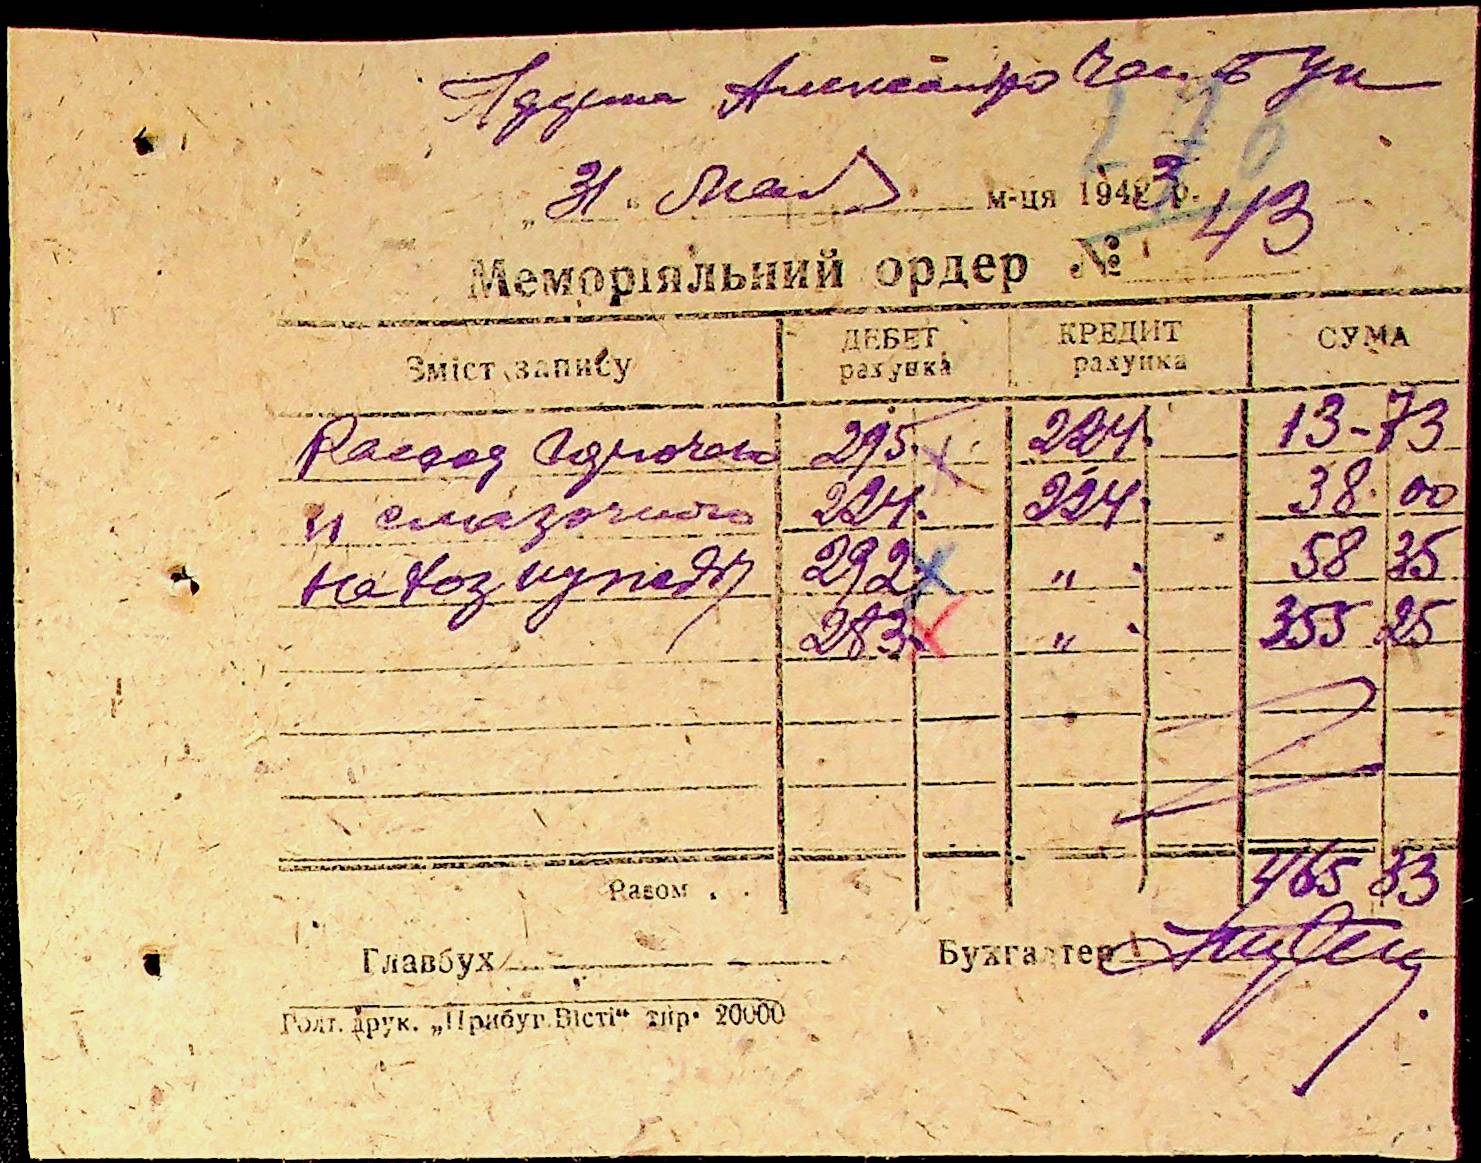 276
"31" Мая м-ця 1943 р.
Меморіяльний ордер № 43
Зміст запису ДЕБЕТ рахунка КРЕДИТ рахунка СУМА
Расход горючего 295. 224. 13-73
и смазочного 224. 224. 38. 00
на хоз нужды 292. " 58 35
283. " 355 25
Разом . . 465 33
Главбух Бухгалтер
Голт. друк. „Прибуг.Вісті“ тир. 20000